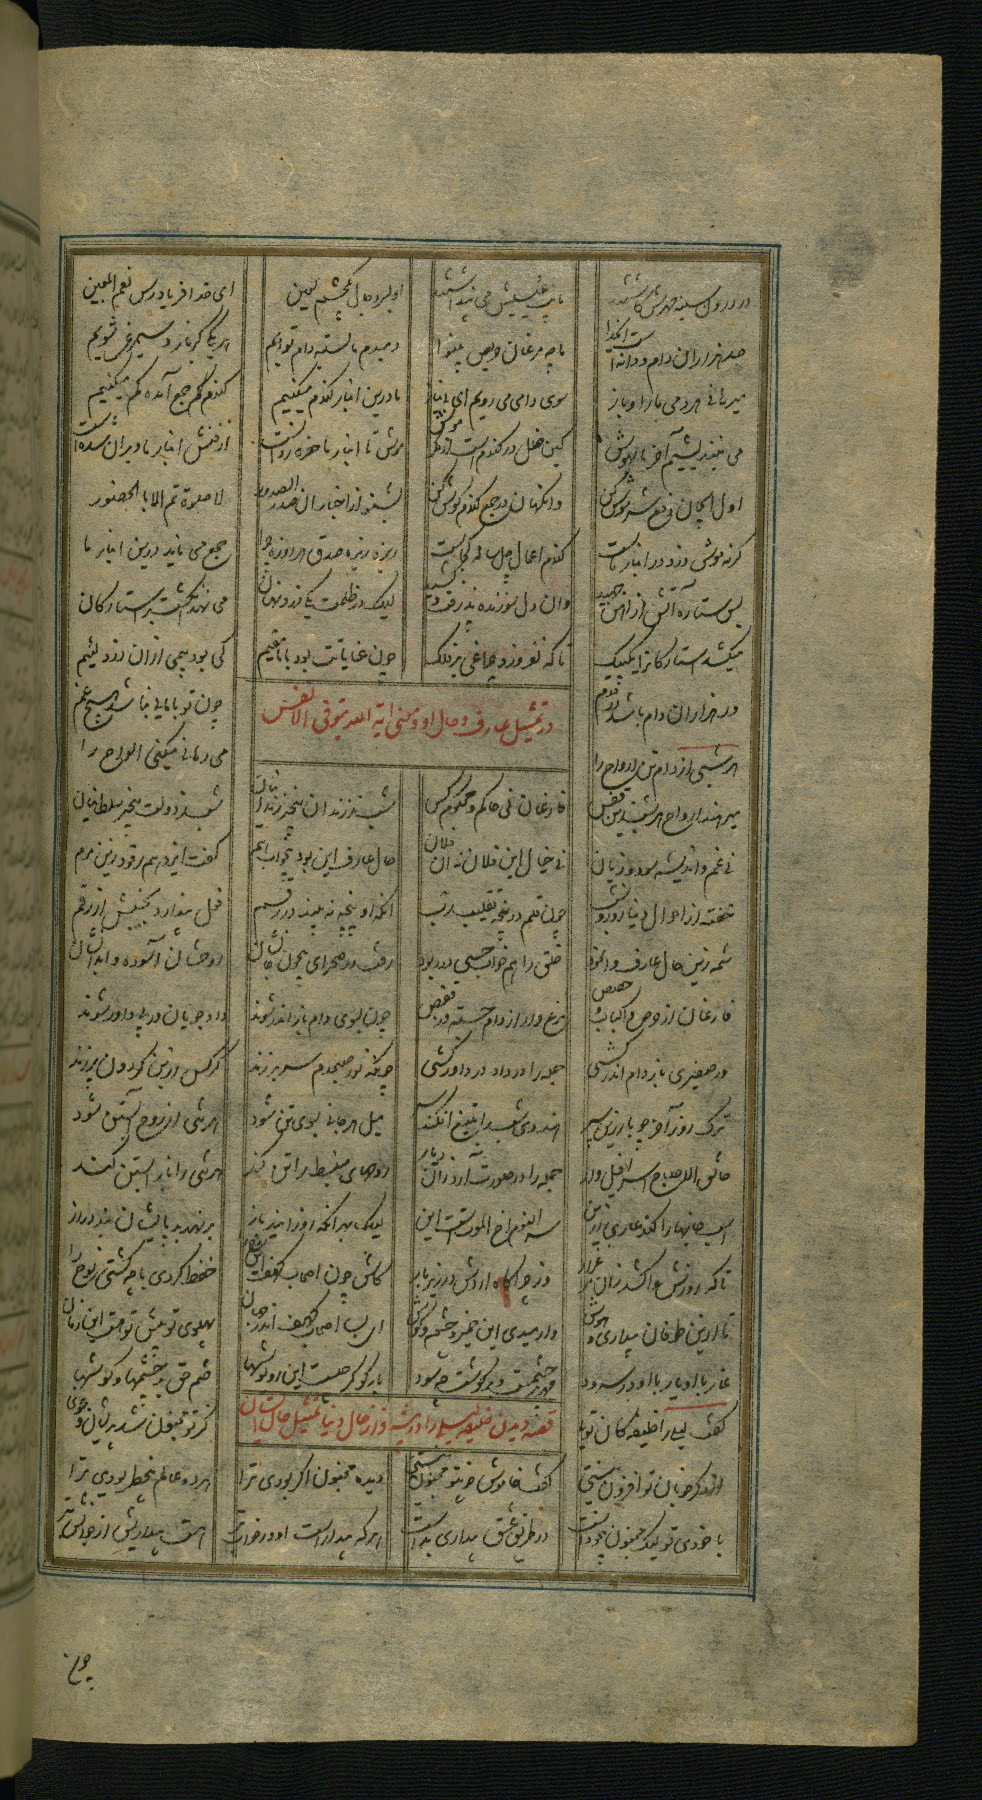 در درون سینه مهرش کاشتند نایب عیسیش می پنداشتند او بسر دجال یکچشم لعین ای خدا فریادرس نعم المعین
صد هزاران دام و دانه است ای خدا ما چو مرغان حریص بینوا دمبدم ما بسته دام توایم هر یکی گر باز و سیمرغی شویم
میرهانی هر دمی ما را و باز سوی دامی می رویم ای بی نیاز ما درین انبار گندم میکنیم گندم جمع آمده گم میکنیم
می نیندیشیم آخر ما بهوش کین خلل در گندم است از مکر موش موش تا انبار ما حفره زدست از فنش انبار ما ویران شدست
اول ای جان دفع شر موش کن وانگهان در جمع گندم کوش کن بشنو از اخبار آن صدر الصدور لا صلوة تم الا بالحضور
گرنه موش دزد در انبار ماست گندم اعمال چل ساله کجاست ریزه ریزه صدق هر روزه چرا جمع می ناید درین انبار ما
بس ستاره آتش از آهن جهید وان دل سوزنده پذرفت و کشید لیک در ظلمت یکی دزدی نهان می نهد انگشت بر استارگان
میکشد استارگان را یک بیک تا که نفروزد چراغی بر فلک چون عنایاتت بود با ما مقیم کی بود بیمی ازان دزد لئیم
ور هزاران دام باشد هر قدم چون تو با مایی نباشد هیچ غم
در تمثیل عارف و حال او و معنی آیه الله یتوفی الانفس
هر شبی از دام تن ارواح را می رهانی میکنی الواح را
میرهند ارواح هر شب زین قفس فارغان نی حاکم و محکوم کس شب ز زندان بیخبر زندانیان شب ز دولت بیخبر سلطانیان
نی غم و اندیشه سود و زیان نی خیال این فلان و آن فلان حال عارف این بود بیخواب هم گفت ایزد هم رقود زین مرم
خفته از احوال دنیا روز و شب چون قلم در پنجه تقلیب رب آنکه او پنجه نبیند در رقم فعل پندارد بجنبش از قلم
شمه زین حال عارف وانمود خلق را هم خواب حسی در ربود رفت در صحرای بیچون جانشان روحشان آسوده و ابدانشان
فارغان از حرص و اکباب و حصص مرغ وار از دام جسته وز قفص چون بسوی دام باز اندر شوند داد جویان در پی داور شوند
وز صفیری باز دام اندر کشی جمله را در داد و در داور کشی چونکه نور صبحدم سر بر زند کرکس زرین گردون پر زند
ترک روز آخر چو با زرین سپر هندوی شب را بتیغ افکند سر میل هر جانی بسوی تن شود هر تنی از روح آبستن شود
فالق الاصباح اسرافیل وار جمله را در صورت آرد زان دیار روحهای منبسط را تن کند هر تنی را باز آبستن کند
اسب جانها را کند عاری ز زین سر النوم اخ الموتست این لیک بهر آنکه روز آیند باز بر نهد بر پایشان بند دراز
تا که روزش وا کشد زان مرغزار وز چراگاه آردش در زیر بار کاش چون اصحاب کهف آن روح را حفظ کردی یا چو کشتی نوح را
تا ازین طوفان بیداری و هوش وا رهیدی این ضمیر و چشم و گوش ای بسا اصحاب کهف اندر جهان پهلوی تو پیش تو هست این زمان
غار با او یار با او در سرود مهر بر چشمست و بر گوشت چه سود باز گو کز چیست این روپوشها ختم حق بر چشمها و گوشها
گفت لیلی را خلیفه کان تویی کز تو مجنون شد پریشان و غوی
قصه دیدن خلیفه لیلی را حال دنیا تمثیل حال ایشان
از دگر خوبان تو افزون نیستی گفت خامش چون تو مجنون نیستی دیده مجنون اگر بودی ترا هر دو عالم بیخطر بودی ترا
با خودی تو لیک مجنون بیخودست در طریق عشق بیداری بدست هر که بیدارست او در خوابتر هست بیداریش از خوابش بتر
چون